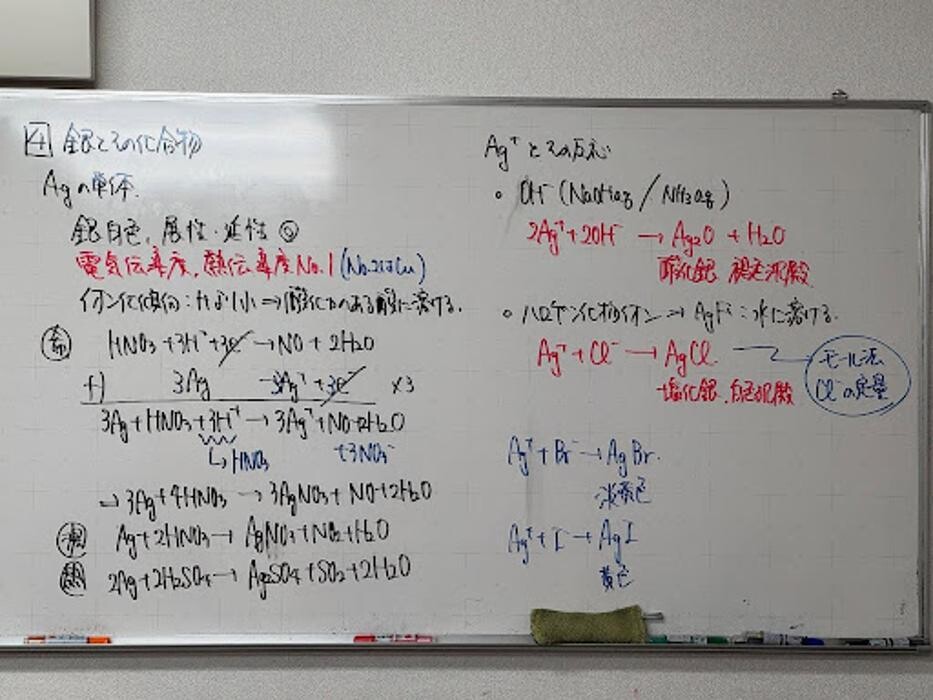 4 銀とその化合物
Agの単体.
銀白色, 展性・延性◎
電気伝導度, 熱伝導度No.1 (No.2はCu)
イオン化傾向:Hより小⇒酸化力のある酸に溶ける.
希 HNO₃ + 3H⁺ + 3e⁻ → NO + 2H₂O
+) 3Ag → 3Ag⁺ + 3e⁻ ×3
3Ag + HNO₃ + 3H⁺ → 3Ag⁺ + NO + 2H₂O
↳ HNO₃ +3NO₃⁻
→ 3Ag + 4HNO₃ → 3AgNO₃ + NO + 2H₂O
濃 Ag + 2HNO₃ → AgNO₃ + NO₂ + H₂O
熱 2Ag + 2H₂SO₄ → Ag₂SO₄ + SO₂ + 2H₂O
Ag⁺とその反応
• OH⁻ (NaOHaq / NH₃aq)
2Ag⁺ + 2OH⁻ → Ag₂O + H₂O
酸化銀 褐色沈殿
• ハロゲン化物イオン → AgF:水に溶ける.
Ag⁺ + Cl⁻ → AgCl.
塩化銀, 白色沈殿
モール法
Cl⁻の定量
Ag⁺ + Br⁻ → AgBr.
淡黄色
Ag⁺ + I⁻ → AgI
黄色